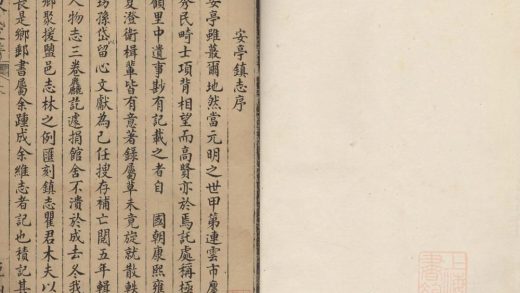 安亭鎮志序
安亭雖蕞爾地然當元明之世甲第連雲市廛
秀民畸士項背相望而高賢亦於焉託處稱極
顧里中遺事尠有記載之者自 國朝康熙雍
夏澄衡楫輩皆有意著錄屬草未竟旋就散軼
孫岱留心文獻為己任搜存補亡閱五年輯
人物志三卷麤訖遽捐館舍不潰於成去冬我
鄉聚援鹽邑志林之例匯刻鎮志瞿君木夫以
長是鄉郵書屬余踵成余維志者記也積記其
上海
書